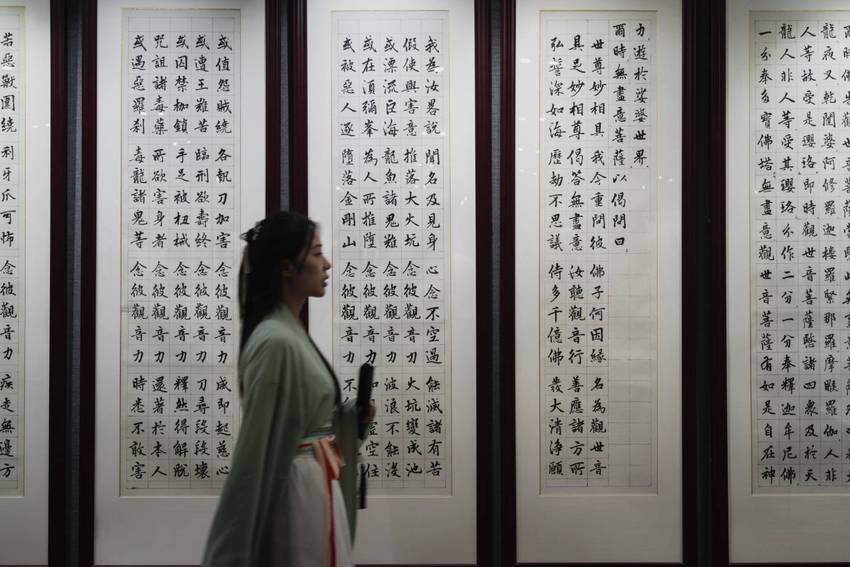 龍夜叉乾闥婆阿修羅迦樓羅緊那羅摩睺羅伽人非
人等故受是瓔珞即時觀世音菩薩愍諸四眾及於天
龍人非人等受其瓔珞分作二分一分奉釋迦牟尼佛
一分奉多寶佛塔無盡意觀世音菩薩有如是自在神
力遊於娑婆世界
爾時無盡意菩薩以偈問曰
世尊妙相具 我今重問彼 佛子何因緣 名為觀世音
具足妙相尊 偈答無盡意 汝聽觀音行 善應諸方所
弘誓深如海 歷劫不思議 侍多千億佛 發大清淨願
我為汝畧說 聞名及見身 心念不空過 能滅諸有苦
假使興害意 推落大火坑 念彼觀音力 火坑變成池
或漂流巨海 龍魚諸鬼難 念彼觀音力 波浪不能沒
或在須彌峯 為人所推墮 念彼觀音力 空住
或被惡人逐 墮落金剛山 念彼觀音力 不
或值怨賊繞 各執刀加害 念彼觀音力 咸即起慈心
或遭王難苦 臨刑欲壽終 念彼觀音力 刀尋段段壞
或囚禁枷鎖 手足被杻械 念彼觀音力 釋然得解脫
咒詛諸毒藥 所欲害身者 念彼觀音力 還著於本人
或遇惡羅剎 毒龍諸鬼等 念彼觀音力 時悉不敢害
若惡獸圍繞 利牙爪可怖 念彼觀音力 疾走無邊方